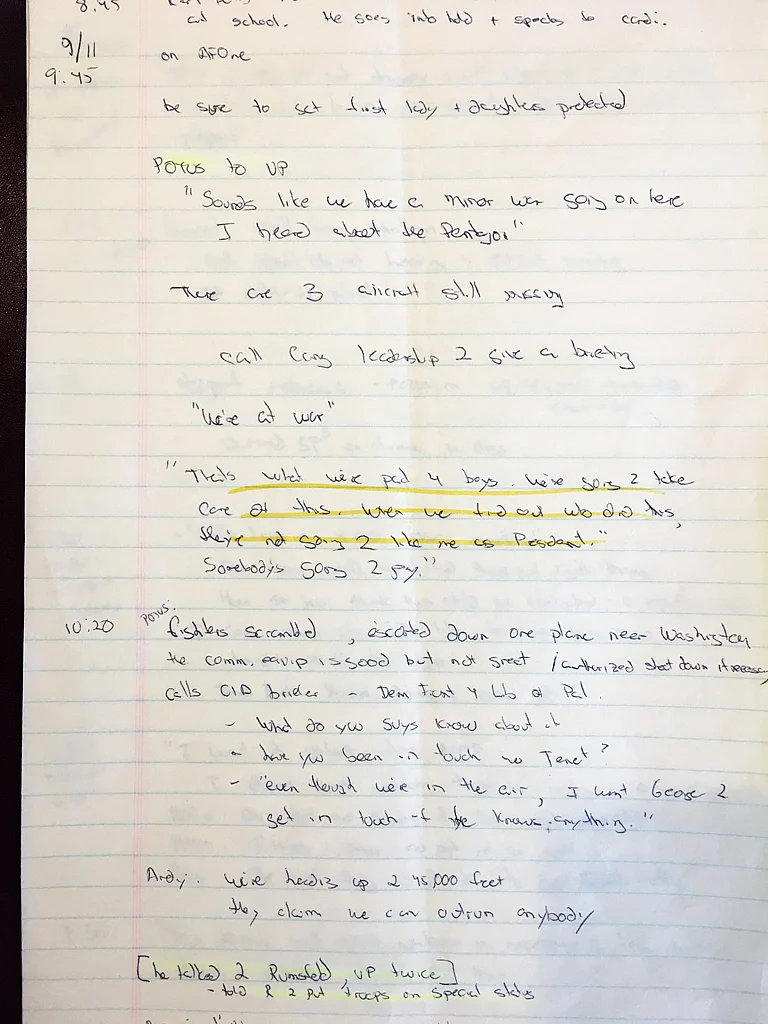 8:45
at school. He goes into hold + speaks to Condi.
9/11
9:45
on AFOne
be sure to get first lady + daughters protected
POTUS to VP
"Sounds like we have a minor war going on here
I heard about the Pentagon"
There are 3 aircraft still missing
call Cong leadership 2 give a briefing
"We're at war"
"That's what we're paid 4 boys. We're going 2 take
care of this. When we find out who did this,
they're not going 2 like me as President."
Somebody's going 2 pay."
10:20
POTUS:
fighters scrambled, escorted down one plane near Washington
the comm. equip is good but not great / authorized shoot down if necessary
calls CIA briefer - Dem Front 4 Lib of Pal.
- What do you guys know about it
- have you been in touch w Tenet?
- "even though we're in the air, I want George 2
get in touch if he knows anything."
Andy. We're heading up 2 45,000 feet
they claim we can outrun anybody
[he talked 2 Rumsfeld, VP twice]
- told R 2 put troops on special status